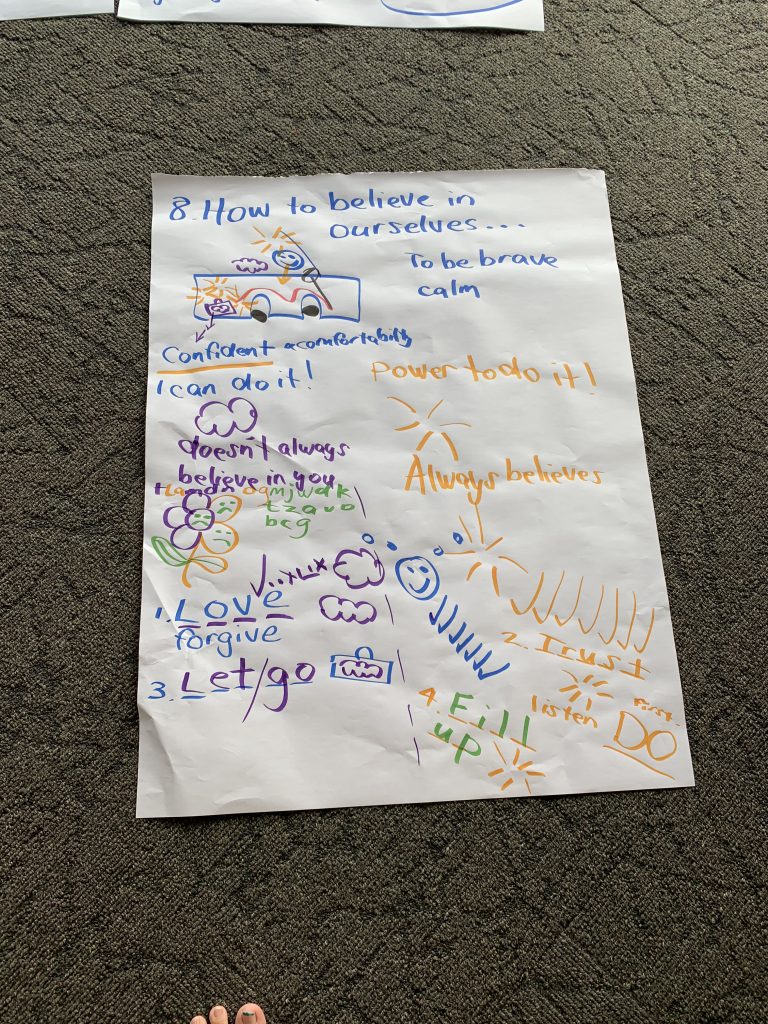 8. How to believe in
ourselves...
To be brave
calm
Confident & comfortability
I can do it!
Power to do it!
doesn't always
believe in you
Always believes
bcg
1. Love
forgive
2. Trust
3. Let/go
4. Fill
up
listen
First
DO